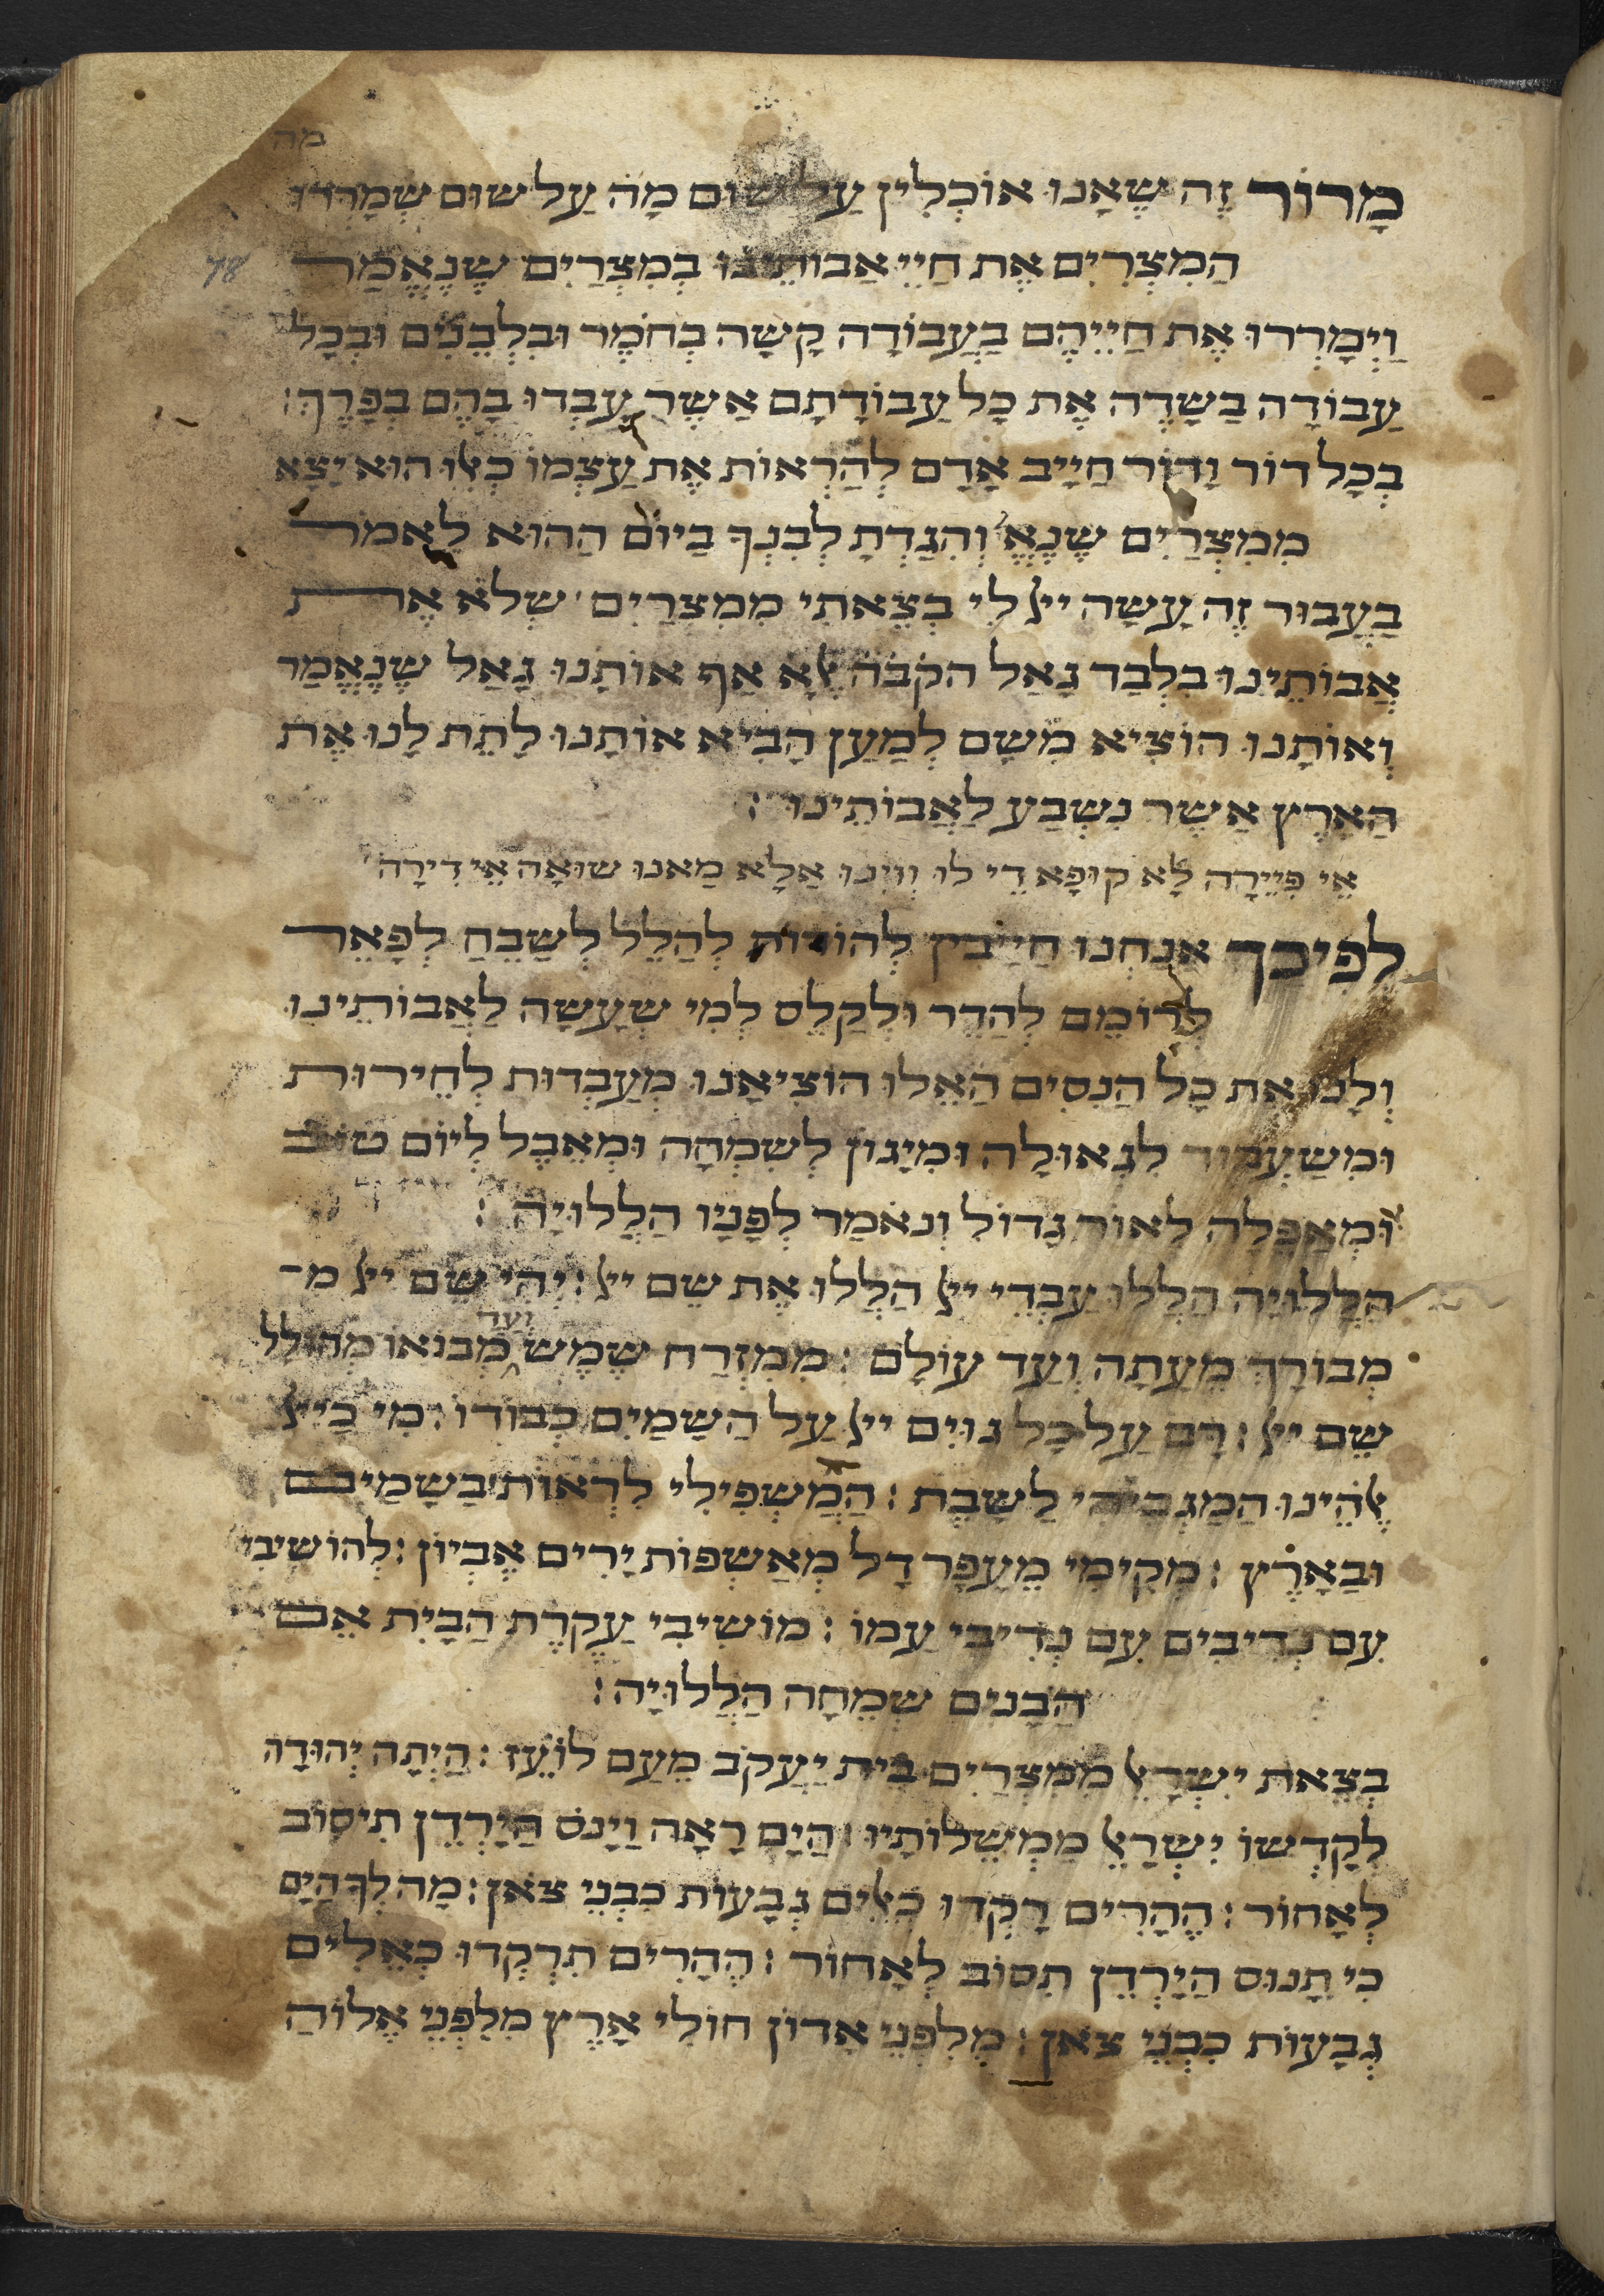 מה
מָרוֹר זֶה שֶׁאָנוּ אוֹכְלִין עַל שׁוּם מָה עַל שׁוּם שֶׁמָּרְרוּ
78
הַמִצְרִיִם אֶת חַיֵי אֲבוֹתֵינוּ בְמִצְרַיִם שֶׁנֶאֱמַר
וַיְמָרְרוּ אֶת חַיֵיהֶם בַעֲבוֹדָה קָשָה בְחֹמֶר וּבִלְבֵנִים וּבְכָל
עֲבוֹדָה בַשָדֶה אֶת כָל עֲבוֹדָתָם אֲשֶר עָבְדוּ בָהֶם בְפָרֶךְ׃
בְכָל דוֹר וָדוֹר חַיָיב אָדָם לְהַרְאוֹת אֶת עַצְמוֹ כְאִלּוּ הוּא יָצָא
מִמִצְרַיִם שֶנֶאֱ׳ וְהִגַדְתָ לְבִנְךָ בַיוֹם הַהוּא לֵאמֹר
בַעֲבוּר זֶה עָשָה ייי לִי בְצֵאתִי מִמִצְרַיִם׳ שֶלֹא אֶת
אֲבוֹתֵינוּ בִלְבַד גָאַל הקֹבֹה אֶלָא אַף אוֹתָנוּ גָאַל שֶנֶאֱמַר
וְאוֹתָנוּ הוֹצִיא מִשָם לְמַעַן הָבִיא אוֹתָנוּ לָתֵת לָנוּ אֶת
הָאָרֶץ אֲשֶר נִשְבַע לַאֲבוֹתֵינוּ׃
אֵי פִּיֵירָה לָא קוּפָּא דֵי לוּ וִוינוּ אַלָא מַאנוּ שוּאָה אֵי דִירָה׳
לְפִיכָךְ אֲנַחְנוּ חַיָיבִין לְהוֹדוֹת לְהַלֵל לְשַבֵחַ לְפָאֵר
לְרוֹמֵם לְהַדֵר וּלְקַלֵס לְמִי שֶעָשָה לַאֲבוֹתֵינוּ
וְלָנוּ אֶת כָל הַנִסִים הָאֵלוּ הוֹצִיאָנוּ מֵעַבְדוּת לְחֵירוּת
וּמִשִעְבּוּד לִגְאוּלָה וּמִיָגוֹן לְשִמְחָה וּמֵאֵבֶל לְיוֹם טוֹב
וּמֵאֲפֵלָה לְאוֹר גָדוֹל וְנֹאמַר לְפָנָיו הַלְלוּיָהּ׃
הַלְלוּיָה הַלְלוּ עַבְדֵי ייי הַלְלוּ אֶת שֵם ייי׃ יְהִי שֵם ייי מ
מְבוֹרָךְ מֵעַתָה וְעַד עוֹלָם׃ מִמִזְרַח שֶמֶש וְעַד מְבוֹאוֹ מְהוּלָל
שֵם ייי׃ רָם עַל כָל גוֹיִם ייי עַל הַשָמַיִם כְבוֹדוֹ׃ מִי כַייי
אֱלֹהֵינוּ הַמַגְבִיהִי לָשָבֶת׃ הַמַשְפִילִי לִרְאוֹת בַשָמַיִם
וּבָאָרֶץ׃ מְקִימִי מֵעָפָר דָל מֵאַשְפוֹת יָרִים אֶבְיוֹן׃ לְהוֹשִיבִי
עִם נְדִיבִים עִם נְדִיבֵי עַמוֹ׃ מוֹשִיבִי עֲקֶרֶת הַבַיִת אֵם
הַבָנִים שְמֵחָה הַלְלוּיָה׃
בְצֵאת יִשְרָאֵל מִמִצְרַיִם בֵית יַעֲקֹב מֵעַם לוֹעֵז׃ הָיְתָה יְהוּדָה
לְקָדְשוֹ יִשְרָאֵל מַמְשְלוֹתָיו׃ הַיָם רָאָה וַיָנֹס הַיַרְדֵן תִיסוֹב
לְאָחוֹר׃ הֶהָרִים רָקְדוּ כְאֵלִים גְבָעוֹת כִבְנֵי צֹאן׃ מַה לְךָ הַיָם
כִי תָנוּס הַיַרְדֵן תִסוֹב לְאָחוֹר׃ הֶהָרִים תִרְקְדוּ כְאֵלִים
גְבָעוֹת כִבְנֵי צֹאן׃ מִלִפְנֵי אָדוֹן חוּלִי אָרֶץ מִלִפְנֵי אֱלוֹהַ